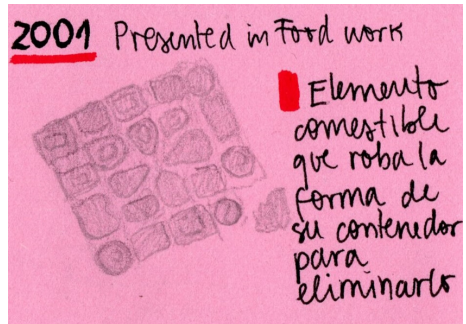 2001 Presented in Food work
Elemento
comestible
que roba la
forma de
su contenedor
para
eliminarlo